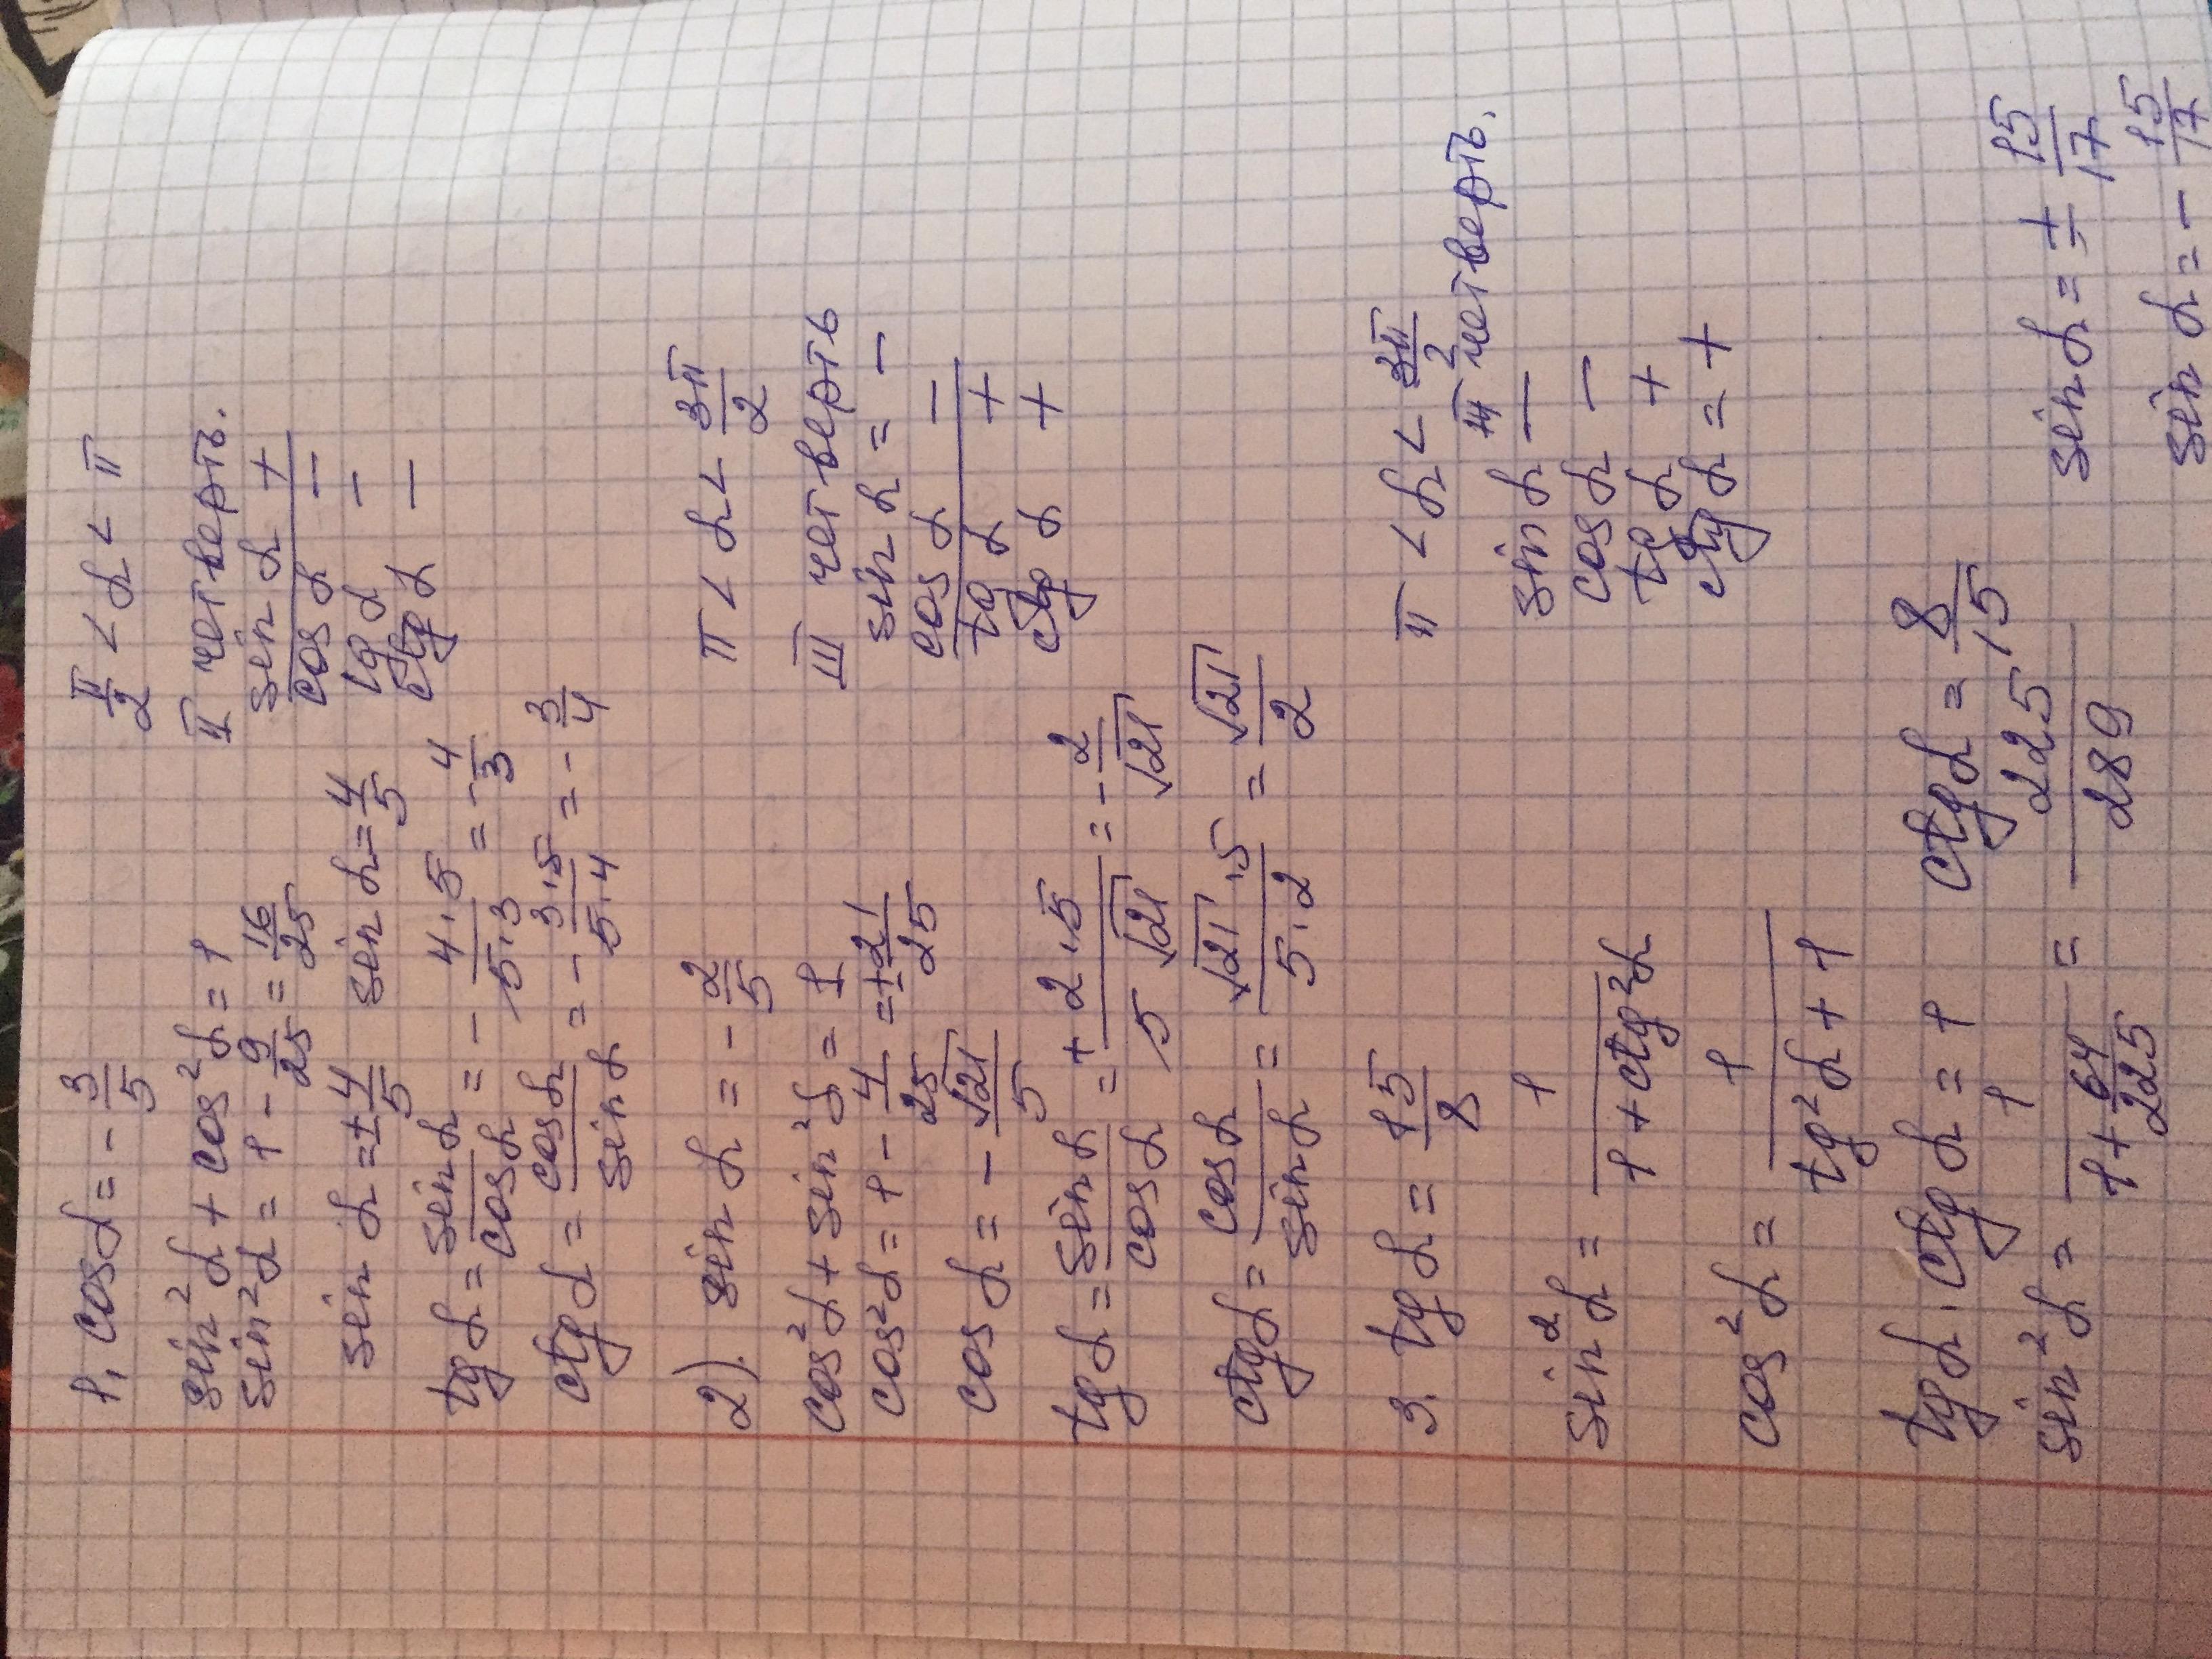 1, cos α = - 3/5   π/2 < α < π
sin² α + cos² α = 1   II четверть.
sin² α = 1 - 9/25 = 16/25   sin α +
sin α = ± 4/5   sin α = 4/5   cos α -
tg α -
tg α = sin α / cos α = - 4·5 / 5·3 = - 4/3   ctg α -
ctg α = cos α / sin α = - 3·5 / 5·4 = - 3/4
2). sin α = - 2/5   π < α < 3π/2
cos² α + sin² α = 1   III четверть
cos² α = 1 - 4/25 = ± 21/25   sin α = -
cos α = - √21/5   cos α -
tg α +
tg α = sin α / cos α = + 2·5 / 5√21 = - 2/√21   ctg α +
ctg α = cos α / sin α = √21·5 / 5·2 = √21/2
3. tg α = 15/8   π < α < 3π/2
III четверть.
sin² α = 1 / 1 + ctg² α   sin α -
cos α -
cos² α = 1 / tg² α + 1   tg α +
ctg α = +
tg α · ctg α = 1   ctg α = 8/15
sin² α = 1 / 1 + 64/225 = 225/289   sin α = ± 15/17
sin α = - 15/17